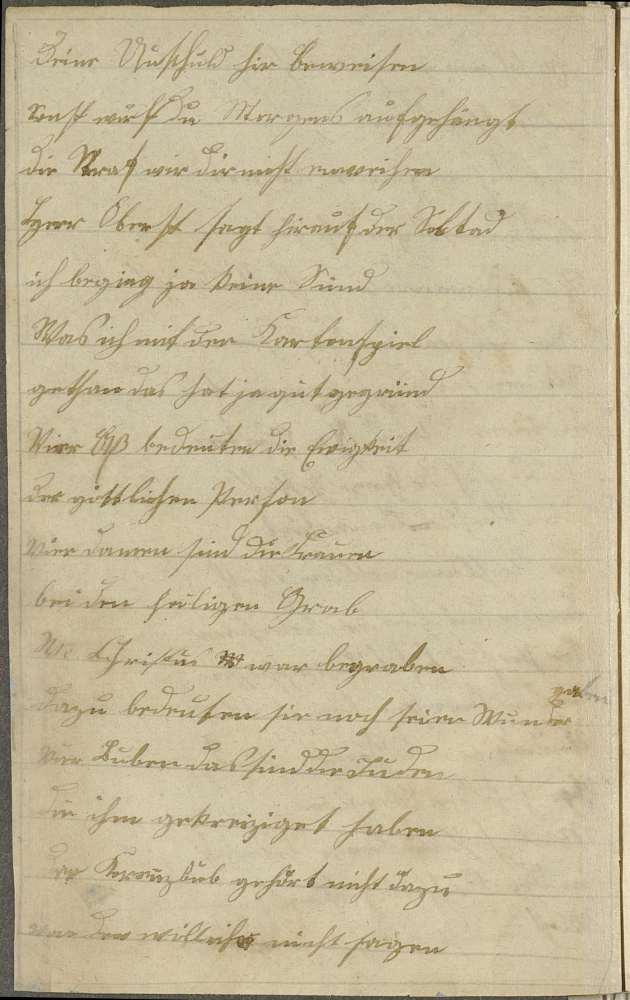 Deine Unschuld hir beweisen
sonst wirst Du Morgens aufgehängt
die Straf wir dir nicht erweisen
Herr Oberst sagt hirauf der Soltad
ich beging ja keine Sünd
Was ich mit den Kartenspiel
gethan das hat ja gut gegründ
Vier Aß bedeuten die Ewigkeit
der göttlichen Person
Vier Damen sind die Frauen
bei den heiligen Grab
Wo Christus war begraben
dazu bedeuten sie noch seine Wunder
gaben
Vier Buben das sind die Juden
die ihm gekreiziget haben
der Kreuzbub gehört nicht dazu
von den will ich nicht sagen